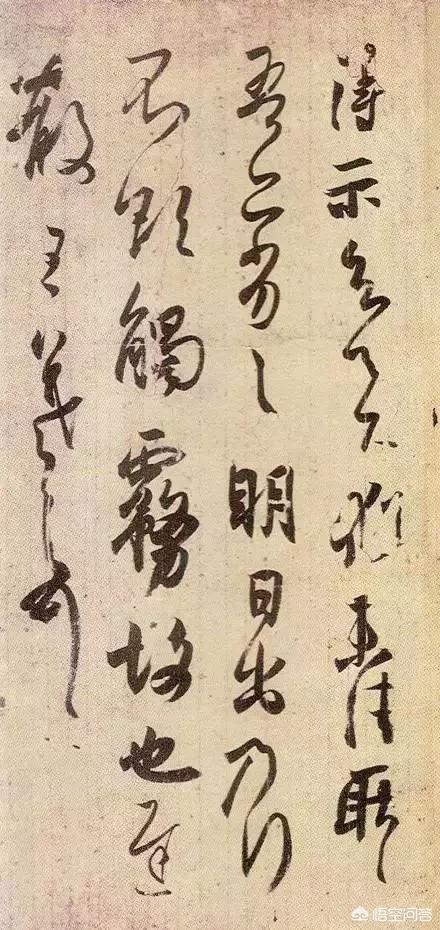 得示知足下猶未佳耿〻
吾亦劣〻明日出乃行
不欲觸霧故也遲
散王羲之頓首
悟空问答